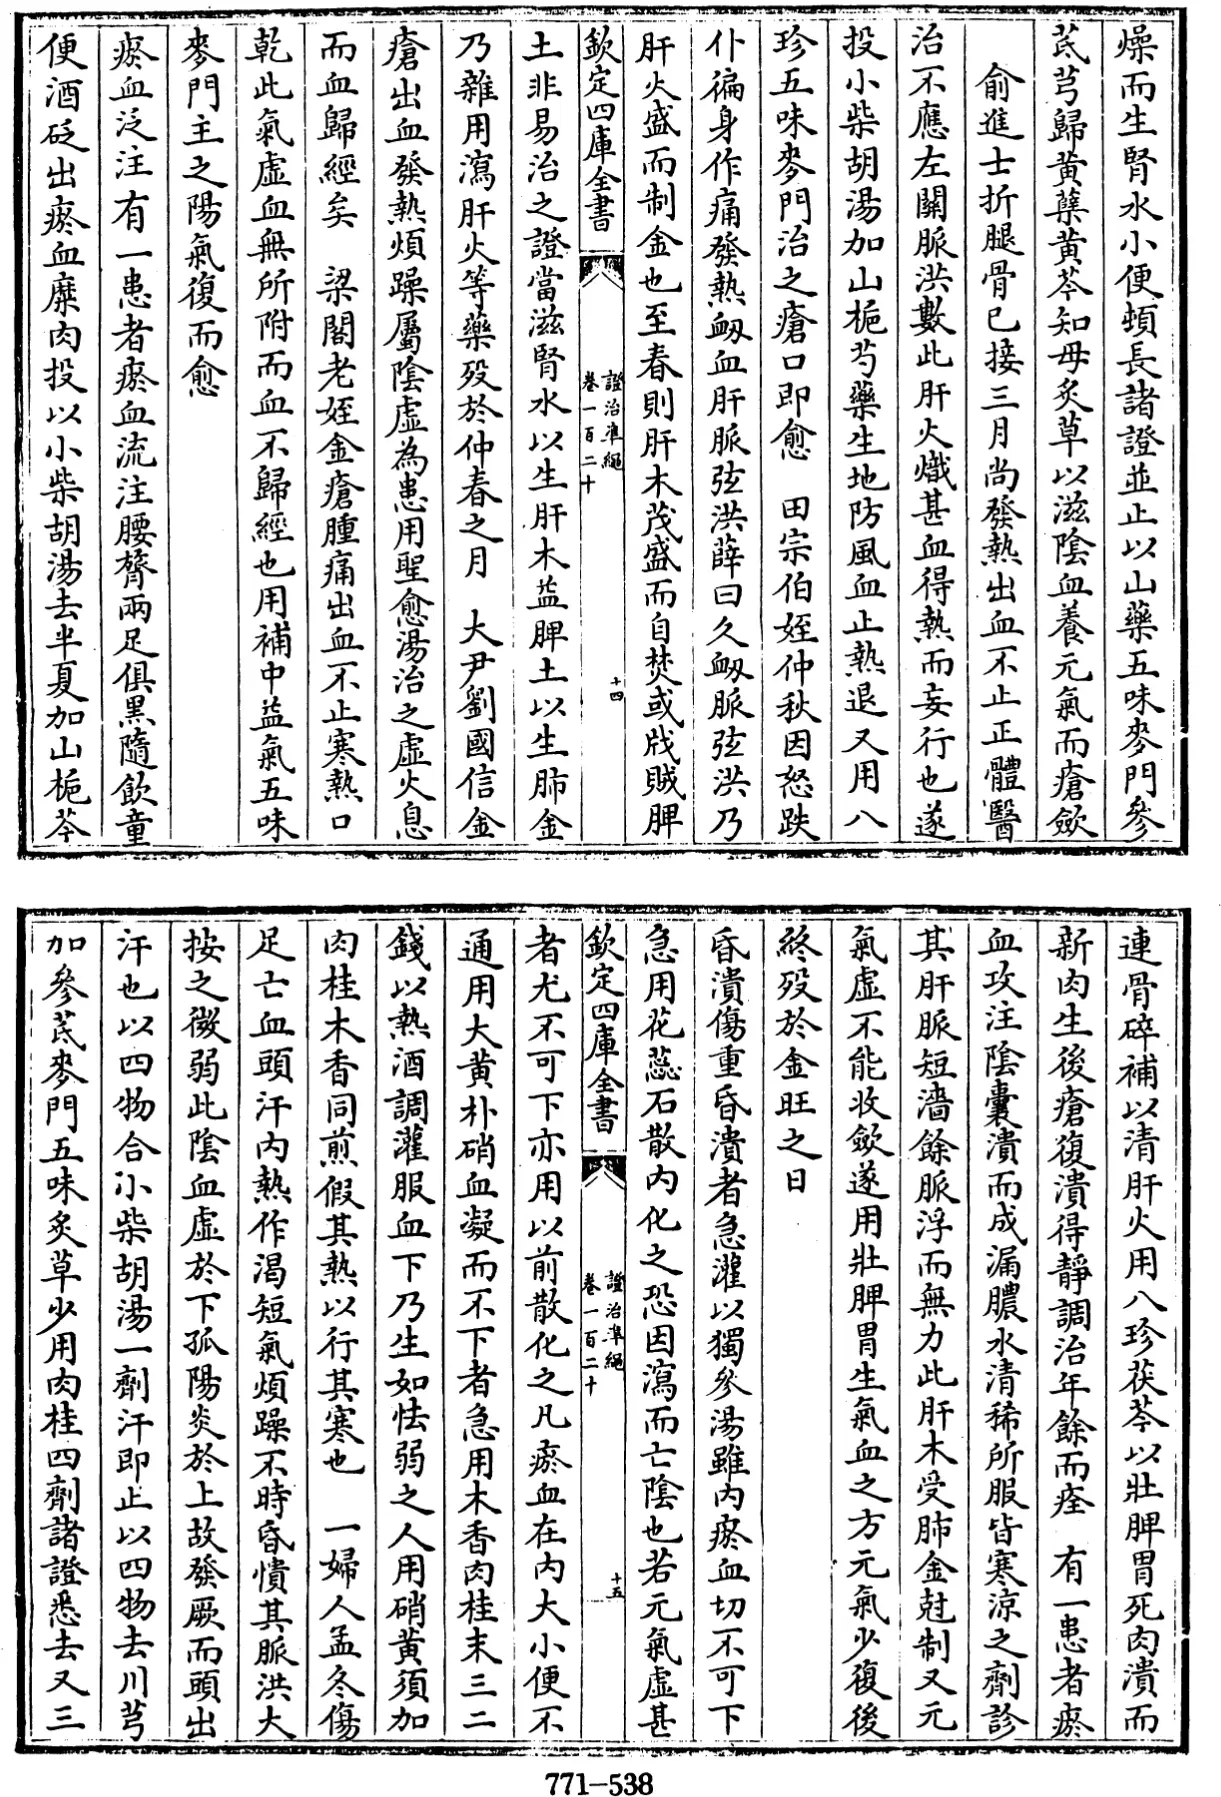 燥而生腎水小便頓長諸證並止以山藥五味麥門參
茋芎歸黃蘗黃芩知母炙草以滋陰血養元氣而瘡斂
俞進士折腿骨已接三月尚發熱出血不止正體醫
治不應左關脈洪數此肝火熾甚血得熱而妄行也遂
投小柴胡湯加山梔芍藥生地防風血止熱退又用八
珍五味麥門治之瘡口即愈　田宗伯姪仲秋因怒跌
仆徧身作痛發熱衂血肝脈弦洪薛曰久衂脈弦洪乃
肝火盛而制金也至春則肝木茂盛而自焚或戕賊脾
欽定四庫全書
證治準繩
卷一百二十
十四
土非易治之證當滋腎水以生肝木益脾土以生肺金
乃雜用瀉肝火等藥殁於仲春之月　大尹劉國信金
瘡出血發熱煩躁屬陰虛為患用聖愈湯治之虛火息
而血歸經矣　梁閣老姪金瘡腫痛出血不止寒熱口
乾此氣虛血無所附而血不歸經也用補中益氣五味
麥門主之陽氣復而愈
瘀血泛注有一患者瘀血流注腰膂兩足俱黑隨飲童
便酒砭出瘀血糜肉投以小柴胡湯去半夏加山梔芩
連骨碎補以清肝火用八珍茯苓以壯脾胃死肉潰而
新肉生後瘡復潰得靜調治年餘而痊　有一患者瘀
血攻注陰囊潰而成漏膿水清稀所服皆寒涼之劑診
其肝脈短濇餘脈浮而無力此肝木受肺金尅制又元
氣虛不能收斂遂用壯脾胃生氣血之方元氣少復後
終殁於金旺之日
昏潰傷重昏潰者急灌以獨參湯雖內瘀血切不可下
急用花蕊石散內化之恐因瀉而亡陰也若元氣虛甚
欽定四庫全書
證治準繩
卷一百二十
十五
者尤不可下亦用以前散化之凡瘀血在內大小便不
通用大黃朴硝血凝而不下者急用木香肉桂末三二
錢以熱酒調灌服血下乃生如怯弱之人用硝黃須加
肉桂木香同煎假其熱以行其寒也　一婦人孟冬傷
足亡血頭汗內熱作渴短氣煩躁不時昏憒其脈洪大
按之微弱此陰血虛於下孤陽炎於上故發厥而頭出
汗也以四物合小柴胡湯一劑汗即止以四物去川芎
加參茋麥門五味炙草少用肉桂四劑諸證悉去又三
771-538